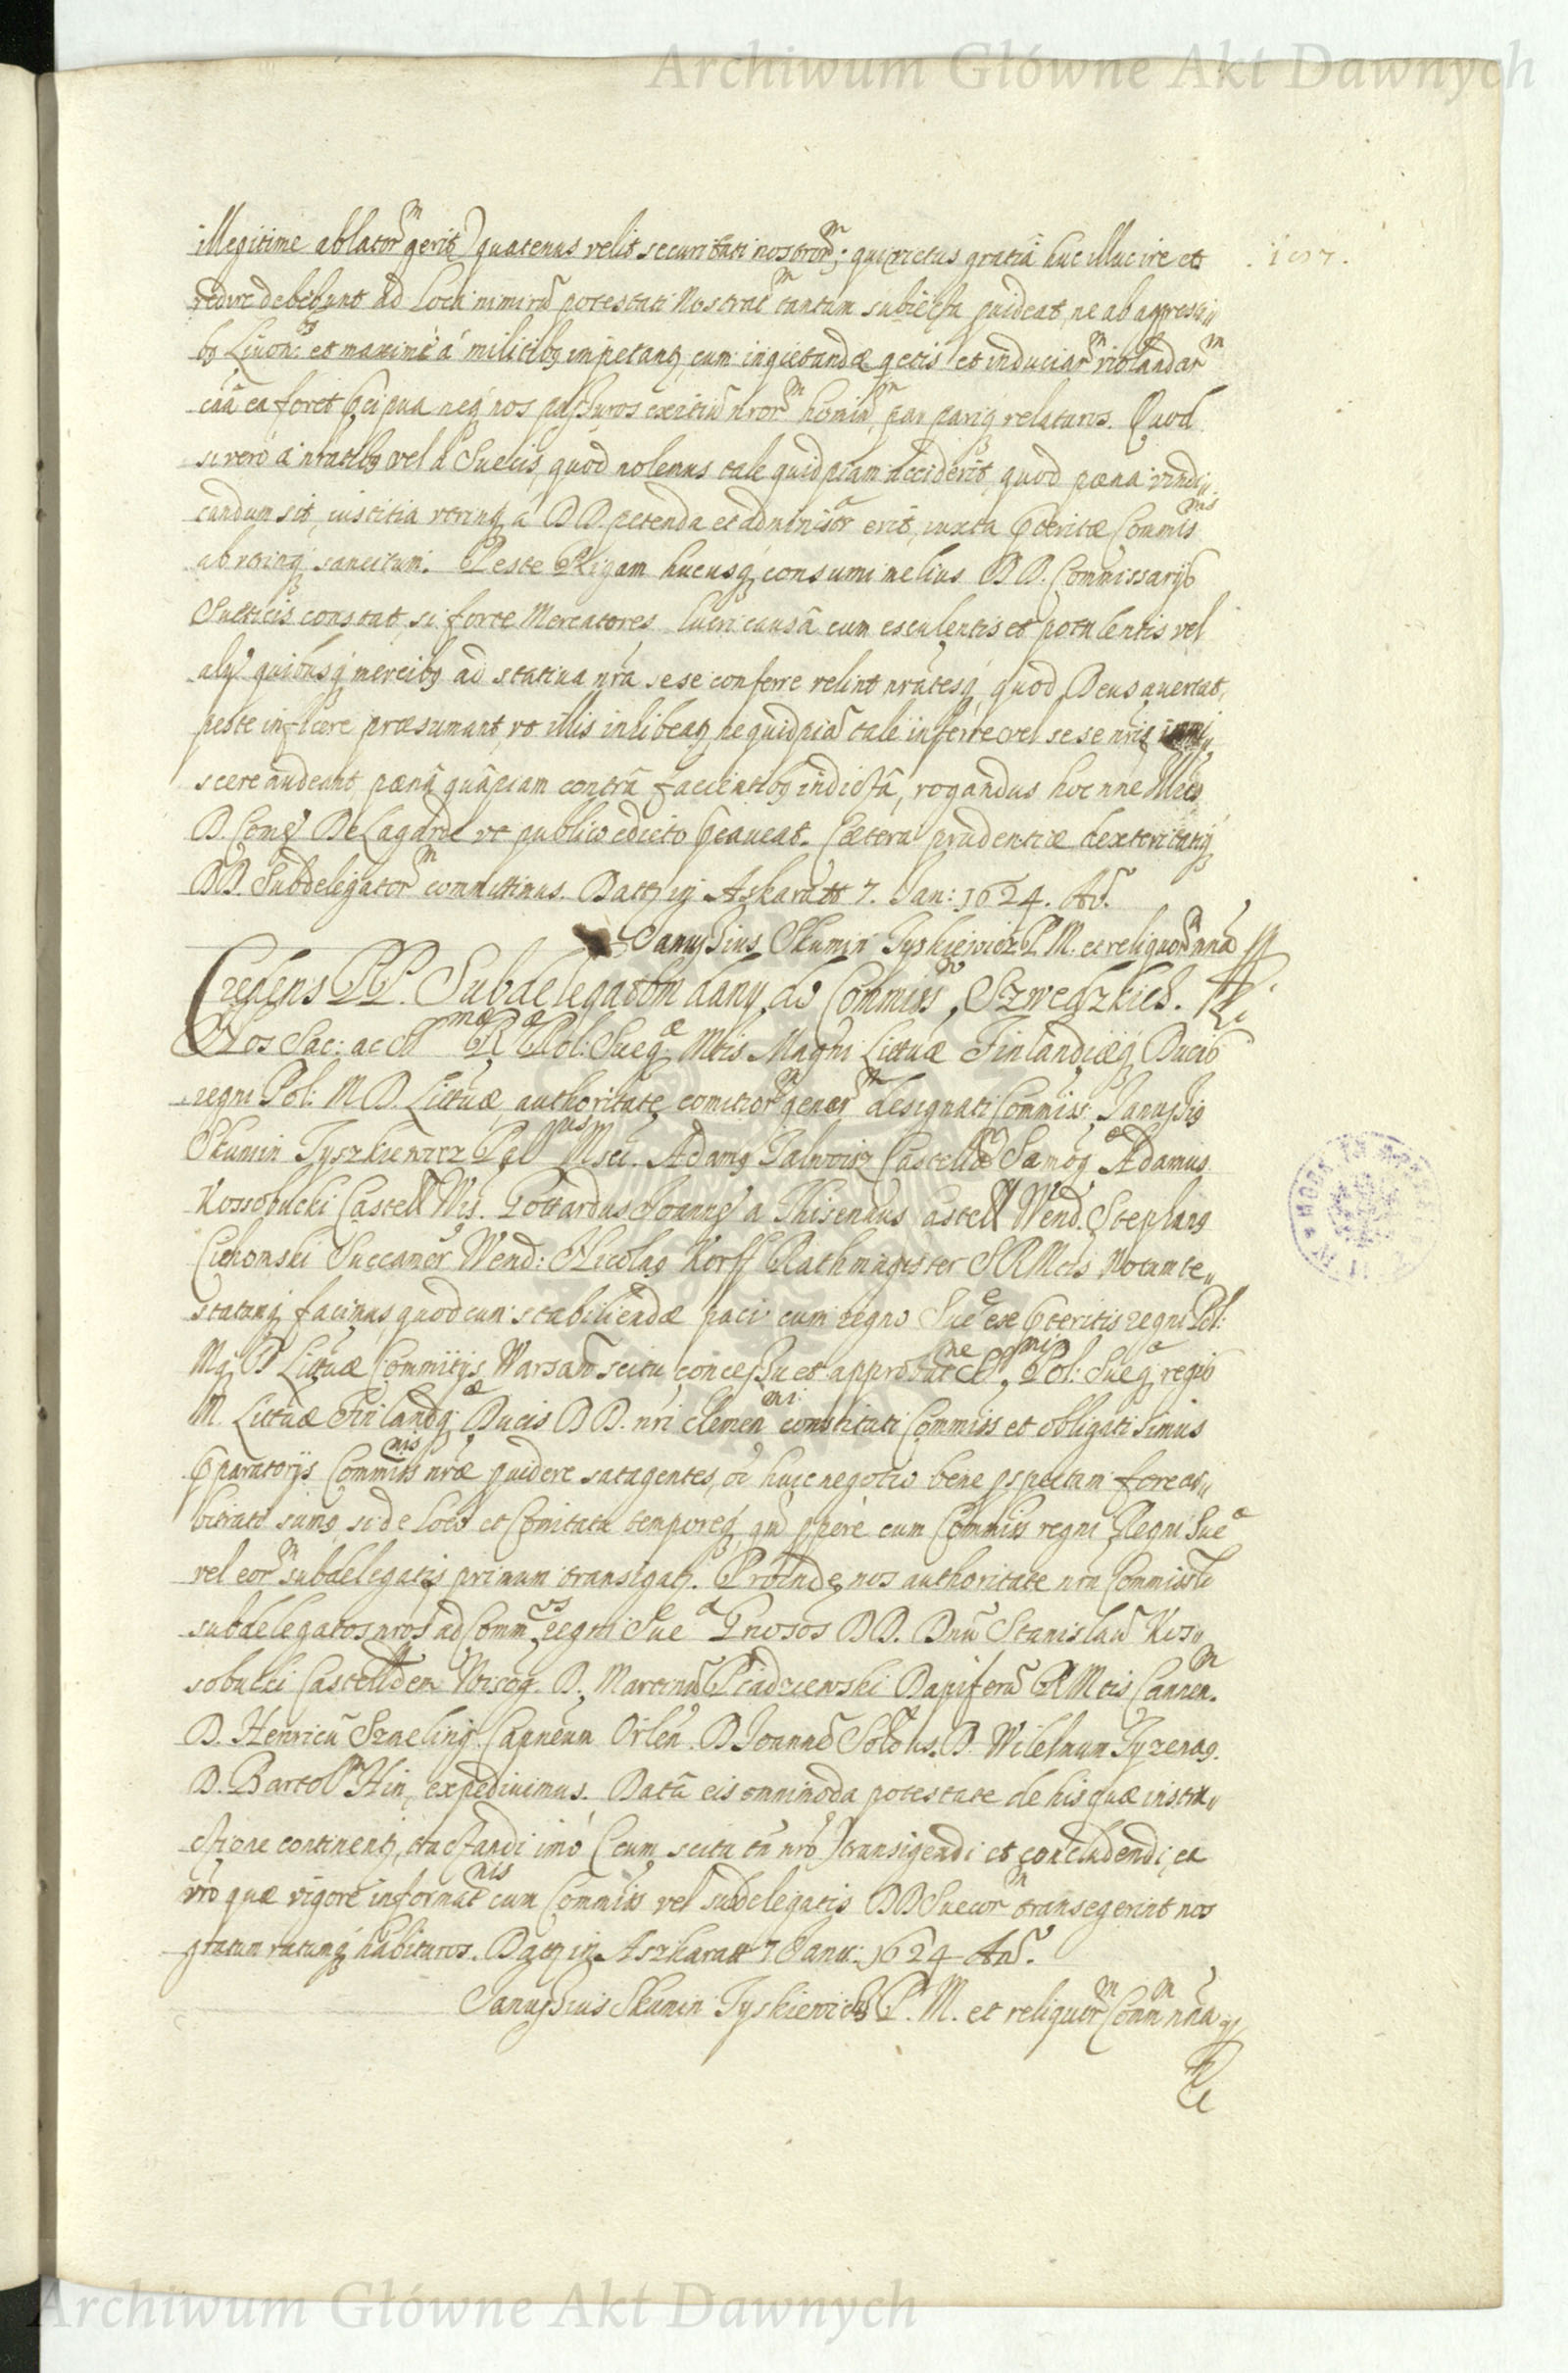 Archiwum Główne Akt Dawnych
illegitime ablator^m gerit) quatenus velit securitati nostror^m, qui victus gratiâ huc illuc ire et
107.
redire debebunt ad loca nimirũ potestati nostrae tantum subiecta puideat, ne ab agressi„
bus Livon: et maximè á militibus impetantur, cum inquietandæ quietis et induciar^m violandar^m
caã ea foret pcipua neq nos passuros exitiũ nror^m hominũ, par pariq relaturos. Quod
si vero á nratibus vel á Suecis, quod nolemus tale quidpiam acciderit, quod pæna vindi„
candum sit, iustitia utrinq á DD. petenda et administr erit, iuxta pteritæ Commis^nis
ab utrinq sancitum. Peste Rigam hucusq consumi melius DD. Commissarijs
Sueticis constat, si forte Mercatores lucri causâ cum esculentis et potulentis vel
alijs quibusq mercibus ad stativa nra sese conferre velint nratesq, quod Deus avertat,
peste inficere præsumant, ut illis inhibeatur, ne quidpiã tale inferre vel sese nris immi„
scere audeant, pænâ quâpiam contrâ facientibus indictâ, rogandus hoc nne Mtis
D. Comes De Lagarde ut publico edicto pcaveat. Cætera prudentiæ dexteritatiq
DD. Subdelegator^m committimus. Datt in Askaratt 7. Jan: 1624. A^o.
Janussius Skumin Tyskiewicz P. M. et reliquor^m nna
Credens PP. Subdelegatom dany do Commiss^w Szwedzkich.
Nos Sac: ac S^mæ R^æ Pol: Sueq^æ Mtis Magni Littuæ Finlandiæq Ducis
regni Pol: M D. Littuæ authoritate comitior^m gener^m designati Commiss: Janussius
Skumin Tyszkiewicz Pal^nus Msci. Adamus Talwoisz Castell^s Samog^æ Adamus
Kossobucki Castell Wis. Gottardus Joannes a Thisenhus Castell Wend. Stephanus
Cichonski Succamer Wend: Nicolaus Korff Rathmagister S R Mtis Notum te„
statumq facimus, quod cum stabiliendæ paci cum regno Sue^æ ex pteritis regni Pol:
Mq D Littuæ Commitijs Warsavi scitu concessu et approbat^ne S^mi Pol: Sueq^æ regis
M. Littuæ Finlandq^æ Ducis D D. nri clemen^mi constituti Commiss et obligati simus
pparatorijs Commiss^nis nræ puidere satagentes, et huic negotio bene pspectum fore ar„
bitrati sumus, si de loco et comitatu temporeq, qũ ppere cum Commiss regni Regni Sue^æ
vel eor^m subdelegatis primum transigatur. Proinde nos authoritate nra Commissli
subdelegatos nros ad Comm^os regni Sue^æ Gnosos DD. Dnũ Stanislaũ Kos„
sobucki Castelliden Viscog. D. Martinũ Piadziewski Dapiferũ R Mtis Capnen.
D. Henricũ Szmeling Capneum Orlen. D Joannẽ D. Wilelmum Tyzenhaus.
D. Bartol^m Hin, expedivimus. Datâ eis omnimoda potestate de his quæ instru„
ctione continentur, tractandi imó (cum scitu tñ nro) transigendi et concludendi, ea
vro quæ vigore informat^nis cum Commiss vel subdelegatis DD Suecor^m transegerint nos
gratum ratumq habituros. Datt in Aszkaratt 7 Janu: 1624 A^o.
Janussius Skumin Tyskiewicz P. M. et reliquor^m Comm^m nna
Archiwum Główne Akt Dawnych